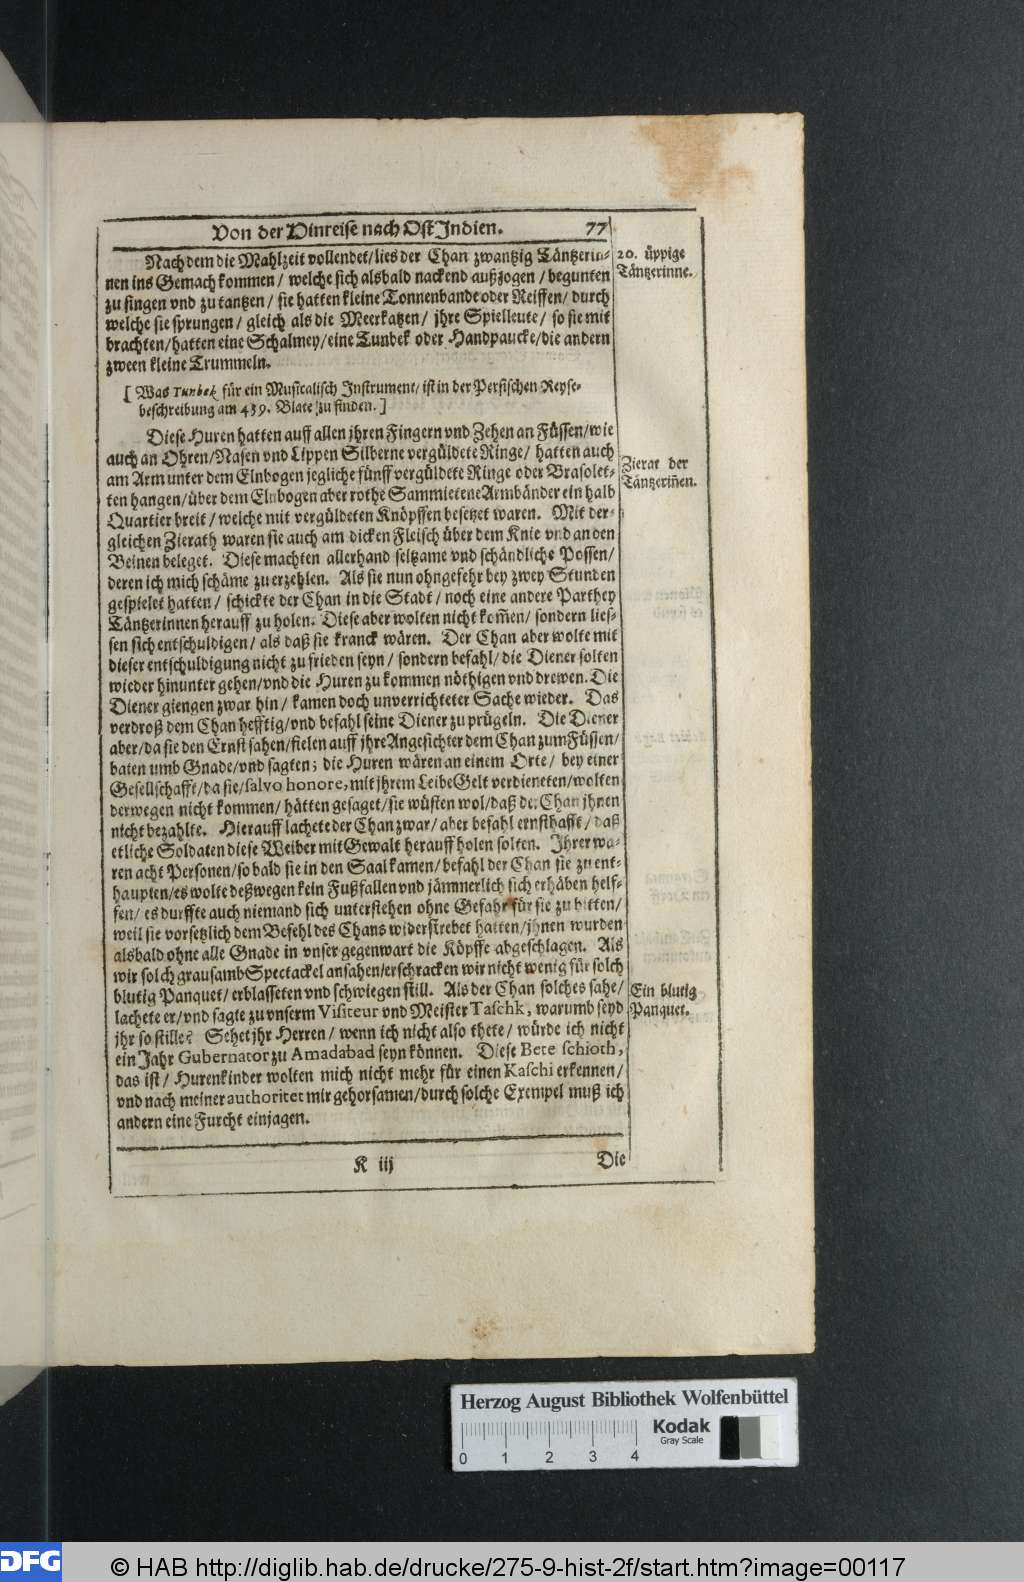 Von der Hinreise nach Ost Indien. 77
Nach dem die Mahlzeit vollendet/ lies der Chan zwantzig Täntzerin-
nen ins Gemach kommen/ welche sich alsbald nackend außzogen/ begunten
zu singen vnd zu tantzen/ sie hatten kleine Tonnenbande oder Reiffen/ durch
welche sie sprungen/ gleich als die Meerkatzen/ jhre Spielleute/ so sie mit
brachten/ hatten eine Schalmey/ eine Tunbek oder Handpaucke/ die andern
zween kleine Trummeln.
20. üppige
Täntzerinne.
[ Was Tunbek für ein Musicalisch Instrument/ ist in der Persischen Reyse-
beschreibung am 439. Blate zu finden. ]
Diese Huren hatten auff allen jhren Fingern vnd Zehen an Füssen/ wie
auch an Ohren/ Nasen vnd Lippen Silberne vergüldete Ringe/ hatten auch
am Arm unter dem Elnbogen jegliche fünff vergüldete Ringe oder Brasolet-
ten hangen/ über dem Elnbogen aber rothe Sammietene Armbänder ein halb
Quartier breit/ welche mit vergüldeten Knöpffen besetzet waren. Mit der-
gleichen Zierath waren sie auch am dicken Fleisch über dem Knie vnd an den
Beinen beleget. Diese machten allerhand seltzame vnd schändliche Possen/
deren ich mich schäme zu erzehlen. Als sie nun ohngefehr bey zwey Stunden
gespielet hatten/ schickte der Chan in die Stadt/ noch eine andere Parthey
Täntzerinnen herauff zu holen. Diese aber wolten nicht kom̃en/ sondern lies-
sen sich entschuldigen/ als daß sie kranck wären. Der Chan aber wolte mit
dieser entschuldigung nicht zu frieden seyn/ sondern befahl/ die Diener solten
wieder hinunter gehen/ vnd die Huren zu kommen nöthigen vnd drewen. Die
Diener giengen zwar hin/ kamen doch unverrichteter Sache wieder. Das
verdroß dem Chan hefftig/ vnd befahl seine Diener zu prügeln. Die Diener
aber/ da sie den Ernst sahen/ fielen auff jhre Angesichter dem Chan zum Füssen/
baten umb Gnade/ vnd sagten; die Huren wären an einem Orte/ bey einer
Gesellschafft/ da sie/ salvo honore, mit jhrem Leibe Gelt verdieneten/ wolten
derwegen nicht kommen/ hätten gesaget/ sie wüsten wol/ daß der Chan jhnen
nicht bezahlte. Hierauff lachete der Chan zwar/ aber befahl ernsthafft/ daß
etliche Soldaten diese Weiber mit Gewalt herauff holen solten. Ihrer wa-
ren acht Personen/ so bald sie in den Saal kamen/ befahl der Chan sie zu ent-
haupten/ es wolte deßwegen kein Fußfallen vnd jämmerlich sich erhäben helf-
fen/ es durffte auch niemand sich unterstehen ohne Gefahr für sie zu bitten/
weil sie vorsetzlich dem Befehl des Chans widerstrebet hatten/ jhnen wurden
alsbald ohne alle Gnade in vnser gegenwart die Köpffe abgeschlagen. Als
wir solch grausamb Spectackel ansahen/ erschracken wir nicht wenig für solch
blutig Panquet/ erblasseten vnd schwiegen still. Als der Chan solches sahe/
lachete er/ vnd sagte zu vnserm Visiteur vnd Meister Taschk, warumb seyd
jhr so stille? Sehet jhr Herren/ wenn ich nicht also thete/ würde ich nicht
ein Jahr Gubernator zu Amadabad seyn können. Diese Bete schioth,
das ist/ Hurenkinder wolten mich nicht mehr für einen Kaschi erkennen/
vnd nach meiner authoritet mir gehorsamen/ durch solche Exempel muß ich
andern eine Furcht einjagen.
Zierat der
Täntzerin̄en.
Ein blutig
Panquet.
K iij Die
Herzog August Bibliothek Wolfenbüttel
Kodak
Gray Scale
0 1 2 3 4
DFG © HAB http://diglib.hab.de/drucke/275-9-hist-2f/start.htm?image=00117